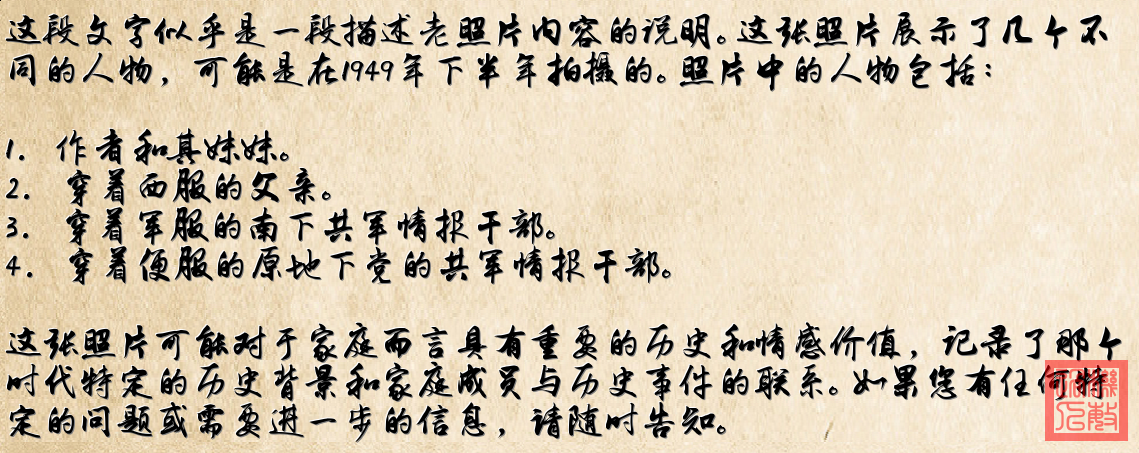 这段文字似乎是一段描述老照片内容的说明。这张照片展示了几个不
同的人物，可能是在1949年下半年拍摄的。照片中的人物包括：
1. 作者和其妹妹。
2. 穿着西服的父亲。
3. 穿着军服的南下共军情报干部。
4. 穿着便服的原地下党的共军情报干部。
这张照片可能对于家庭而言具有重要的历史和情感价值，记录了那个
时代特定的历史背景和家庭成员与历史事件的联系。如果您有任何特
定的问题或需要进一步的信息，请随时告知。